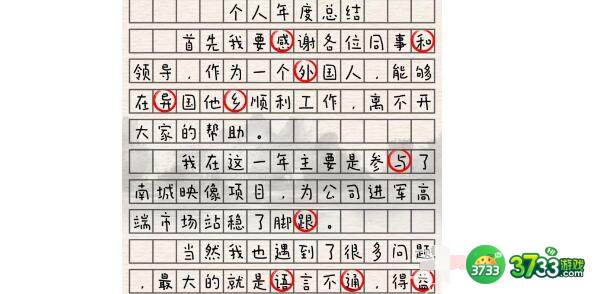 个人年度总结
首先我要感谢各位同事和
领导，作为一个外国人，能够
在异国他乡顺利工作，离不开
大家的帮助。
我在这一年主要是参与了
南城映像项目，为公司进军高
端市场站稳了脚跟。
当然我也遇到了很多问题
，最大的就是语言不通，得益
3733 3733游戏